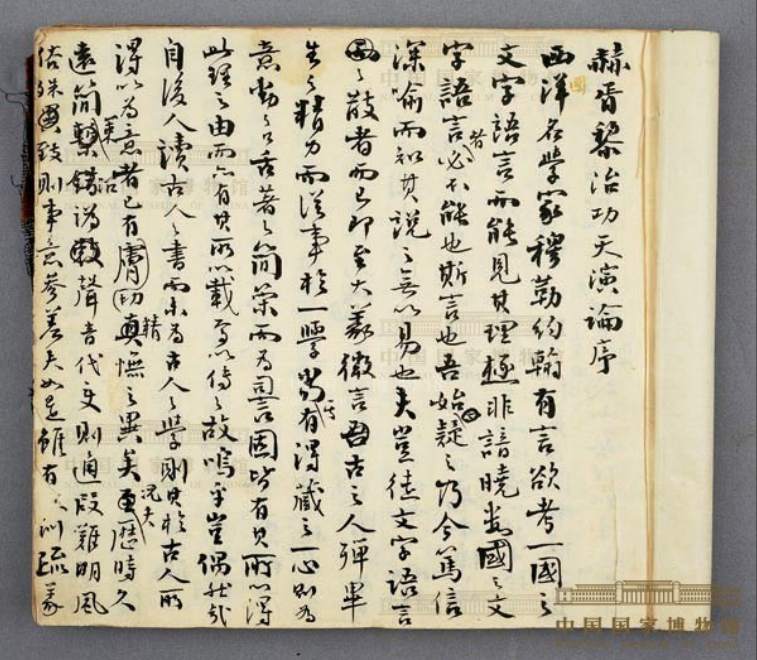 赫胥黎治功天演論序
西洋名學家穆勒約翰有言欲考一國之
文字語言而能見其理極非諳曉數國之文
字語言者必不能也斯言也吾始疑之乃今篤信
深喻而知其說之無以易也夫豈徒文字語言
之散者而已即至大義微言古之人殫畢
生之精力而從事於一學當其有得藏之一心則為
意動之口舌著之簡策而為詞固皆有其所以得
此理之由而亦有其所以載焉以傳之故嗚乎豈偶然哉
自後人讀古人之書而未為古人之學則其於古人所
得以為意者已有膚切精真憮之異矣況夫更歷時久
遠簡錯譌聲音代變則通叚難明風
俗殊異致則事意參差夫如是雖有訓疏義
中国国家博物馆